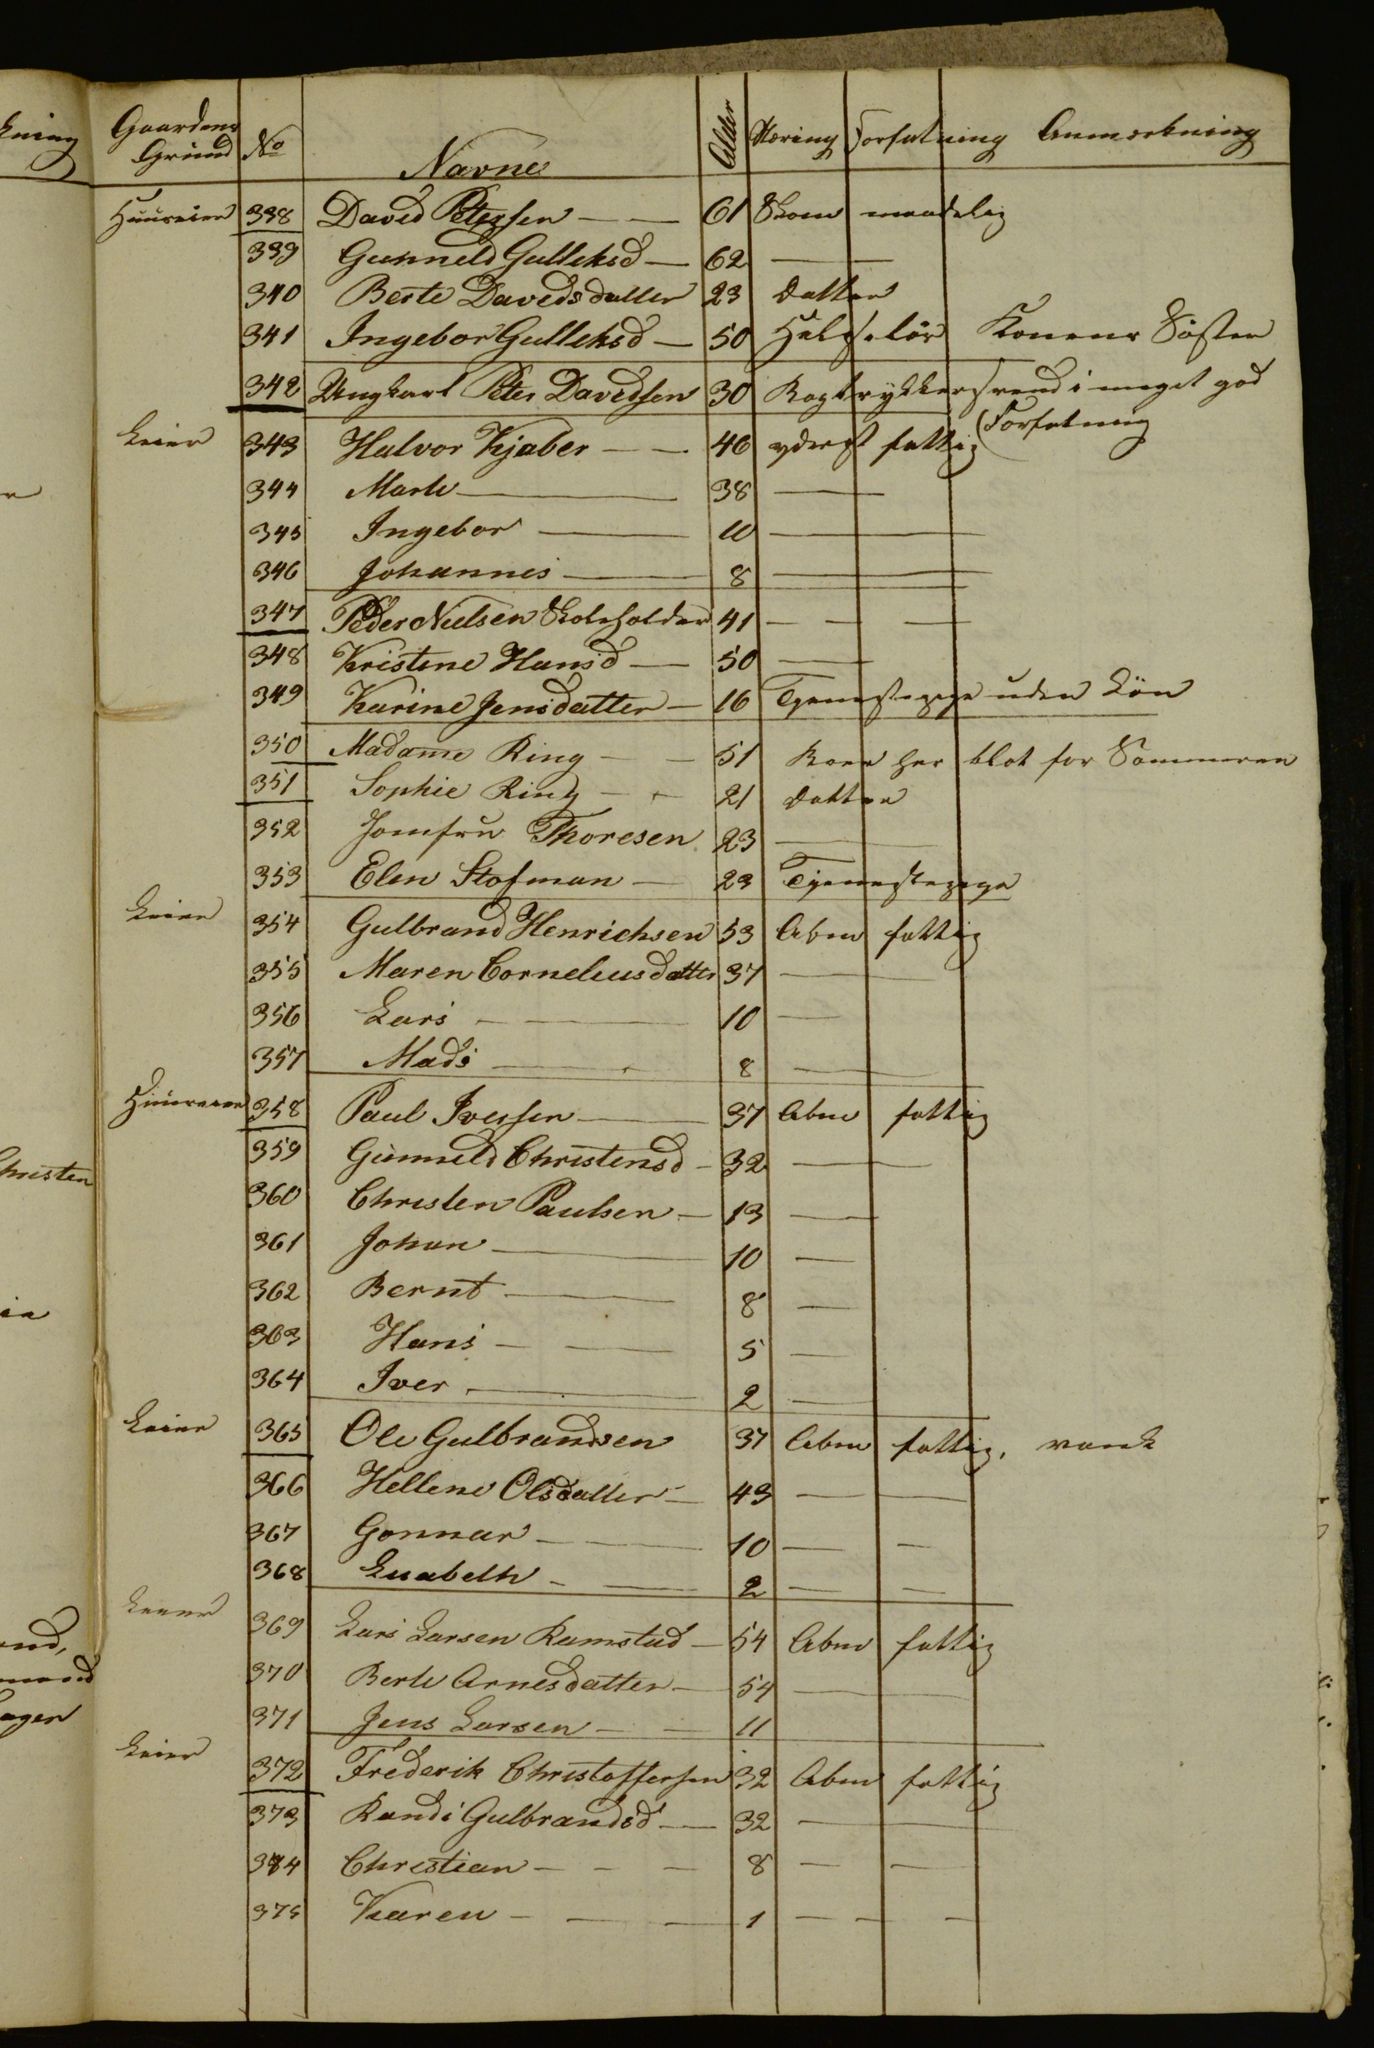 Gaardens Grund No Navne Alder Næring Forfatning Anmærkning
Huuseier 338 David Petersen — — 61 Skom maadelig
339 Gunneld Gulleksd — 62 —
340 Berte Davedsdatter 23 Datter
341 Ingebor Gulleksd — 50 Hielpelös Konens Söster
342 Ungkarl Peter Davidsen 30 Bogtrykkersvend i meget god
Leier 343 Halvor Kjaber — — 46 yderst fattig (Forfatning
344 Marte — 38 —
345 Ingebor — 10 —
346 Johannes — 8 —
347 Peder Nielsen Skoleholder 41 — — —
348 Kristene Hansd — 50 —
349 Karine Jensdatter — 16 Tjenestepige uden Lön
350 Madame Ring — — 51 Boer her blot for Sommeren
351 Sophie Ring — — 21 Datter
352 Jomfru Thoresen 23 —
353 Elen Stofman — 23 Tjenestepige
Leier 354 Gulbrand Henrichsen 53 Arbm fattig
355 Maren Corneliusdatter 37 —
356 Lars — 10 —
357 Mads — 8 —
Huuseier 358 Paul Iversen — 37 Arbm fattig
359 Gunneld Christensd — 32 —
360 Christen Paulsen — 13 —
361 Johan — 10 —
362 Bernt — 8 —
363 Hans — — 5 —
364 Iver — 2 —
Leier 365 Ole Gulbrandsen 37 Arbm fattig, vank
366 Hellene Olsdatter — 43 — —
367 Gonnar — — 10 — —
368 Lisabeth — — 2 — —
Leier 369 Lars Larsen Ramstad — 54 Arbm fattig
370 Berte Arnesdatter — 54 —
371 Jens Larsen — — 11
Leier 372 Frederik Christoffersen 32 Arbm fattig
373 Randi Gulbrandsd — 32 —
374 Christian — — — 8 — —
375 Karen — — — 1 — — —